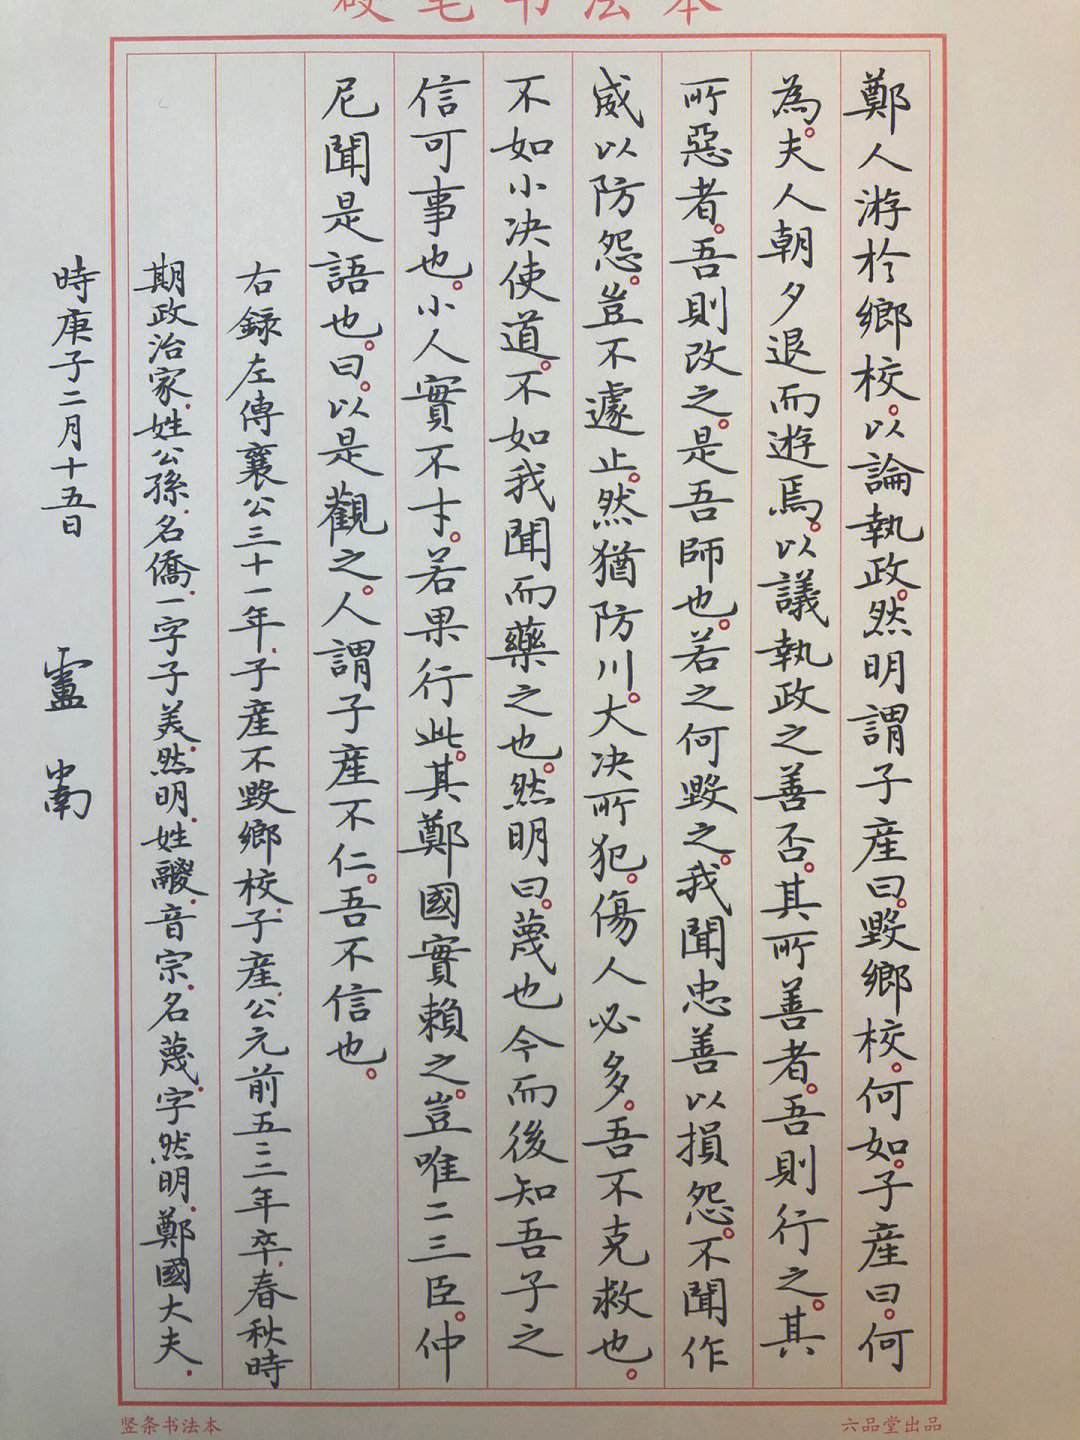 硬笔书法本
鄭人游於鄉校。以論執政。然明謂子産曰。毀鄉校。何如。子産曰。何
為。夫人朝夕退而遊焉。以議執政之善否。其所善者。吾則行之。其
所惡者。吾則改之。是吾師也。若之何毀之。我聞忠善以損怨。不聞作
威以防怨。豈不遽止。然猶防川。大决所犯。傷人必多。吾不克救也。
不如小决使道。不如我聞而藥之也。然明曰。蔑也今而後知吾子之
信可事也。小人實不才。若果行此。其鄭國實賴之。豈唯二三臣。仲
尼聞是語也。曰。以是觀之。人謂子産不仁。吾不信也。
右録左傳襄公三十一年.子産不毀鄉校.子産.公元前五二二年卒.春秋時
期政治家.姓公孫.名僑.一字子美.然明.姓鬷.音宗.名蔑.字然明.鄭國大夫.
時庚子二月十五日
盧 南
竖条书法本
六品堂出品